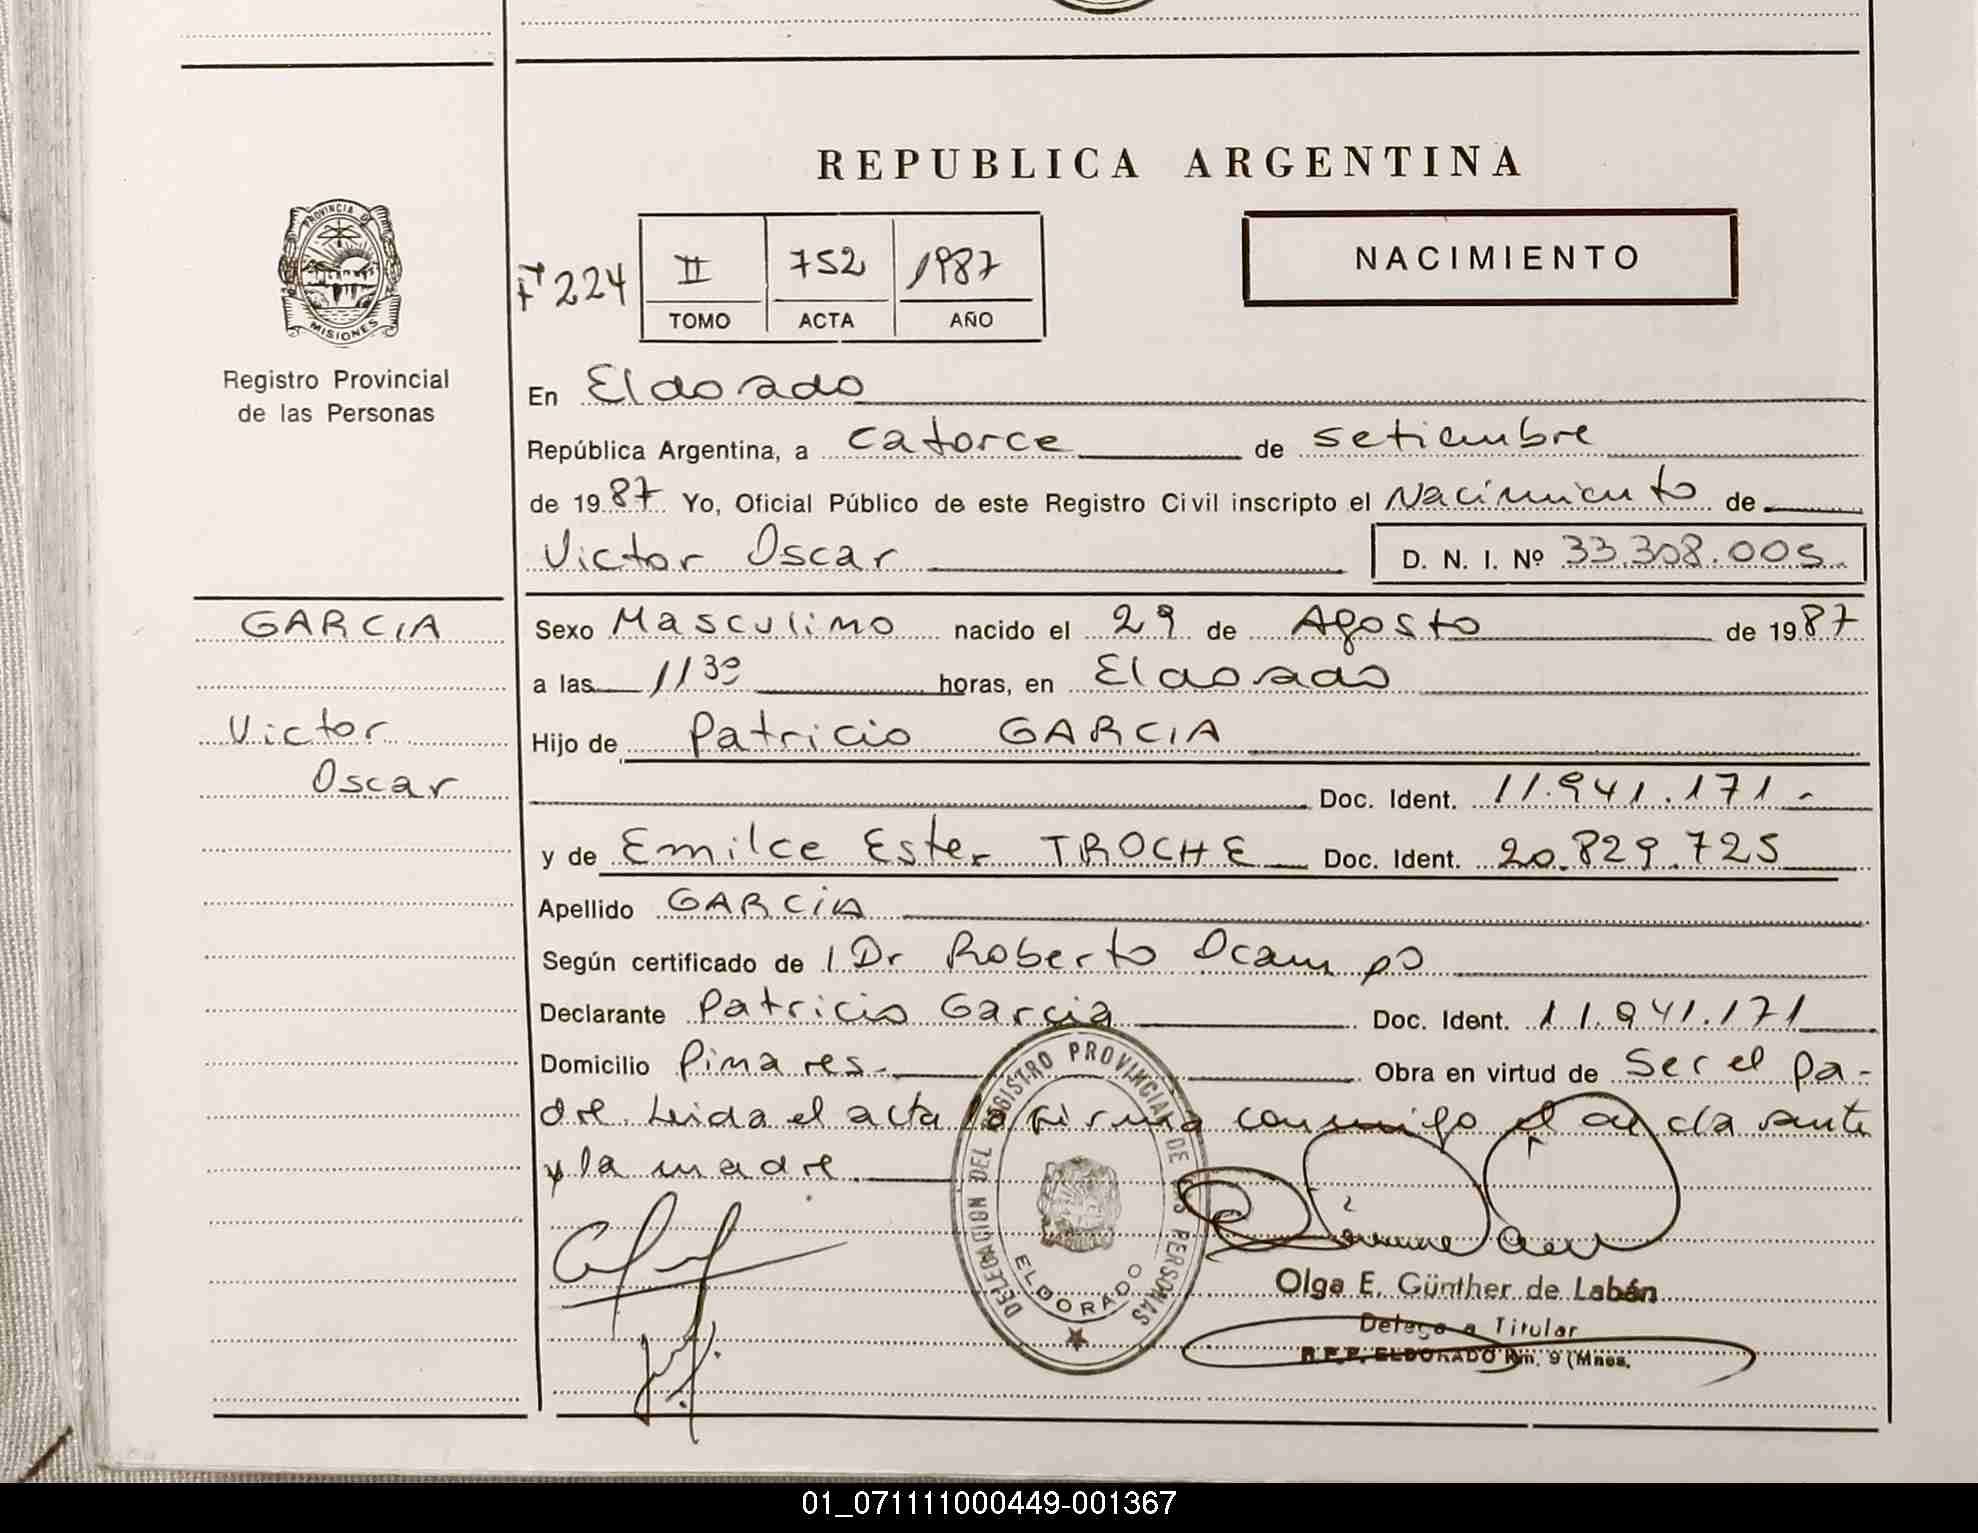 REPUBLICA ARGENTINA
PROVINCIA DE
MISIONES
Registro Provincial
de las Personas
Fº 224
II 752 1987
TOMO ACTA AÑO
NACIMIENTO
En Eldorado
República Argentina, a catorce de setiembre
de 1987 Yo, Oficial Público de este Registro Civil inscripto el Nacimiento de
Victor Oscar D. N. I. Nº 33.308.005.-
GARCIA
Victor
Oscar
Sexo Masculino nacido el 29 de Agosto de 1987
a las 11 30 horas, en Eldorado
Hijo de Patricio GARCIA
Doc. Ident. 11.941.171.-
y de Emilce Ester TROCHE Doc. Ident. 20.829.725
Apellido GARCIA
Según certificado de 1 Dr Roberto Ocampo
Declarante Patricio Garcia Doc. Ident. 11.941.171
Domicilio Pinares.- Obra en virtud de Ser el pa-
dre. Leida el acta la firma conmigo el declarante
y la madre.
DELEGACION DEL REGISTRO PROVINCIAL DE LAS PERSONAS
ELDORADO
Olga E. Günther de Labán
Delegada Titular
R.P.P. ELDORADO Km. 9 (Mnes.
01_071111000449-001367